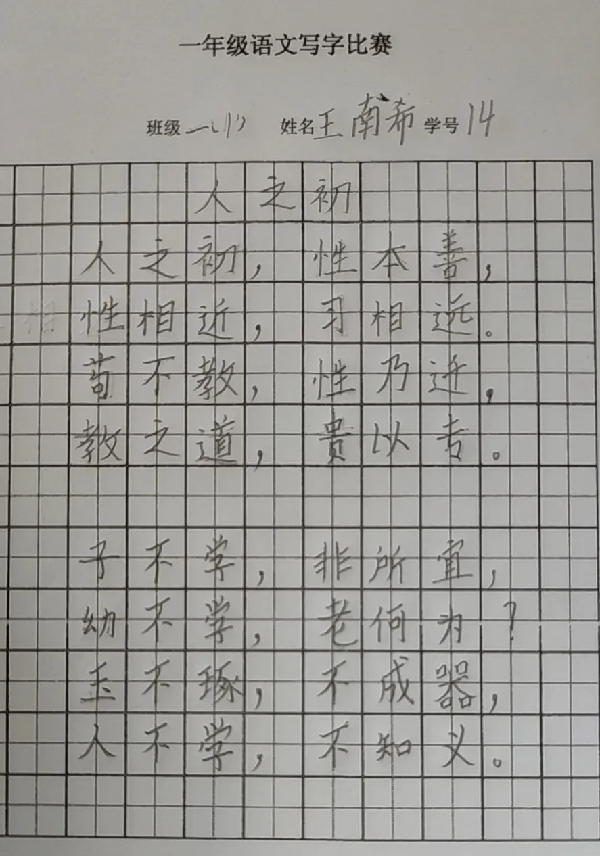 一年级语文写字比赛
班级 一(1) 姓名 王南希 学号 14
人之初
人之初，性本善，
性相近，习相远。
苟不教，性乃迁，
教之道，贵以专。
子不学，非所宜，
幼不学，老何为？
玉不琢，不成器，
人不学，不知义。